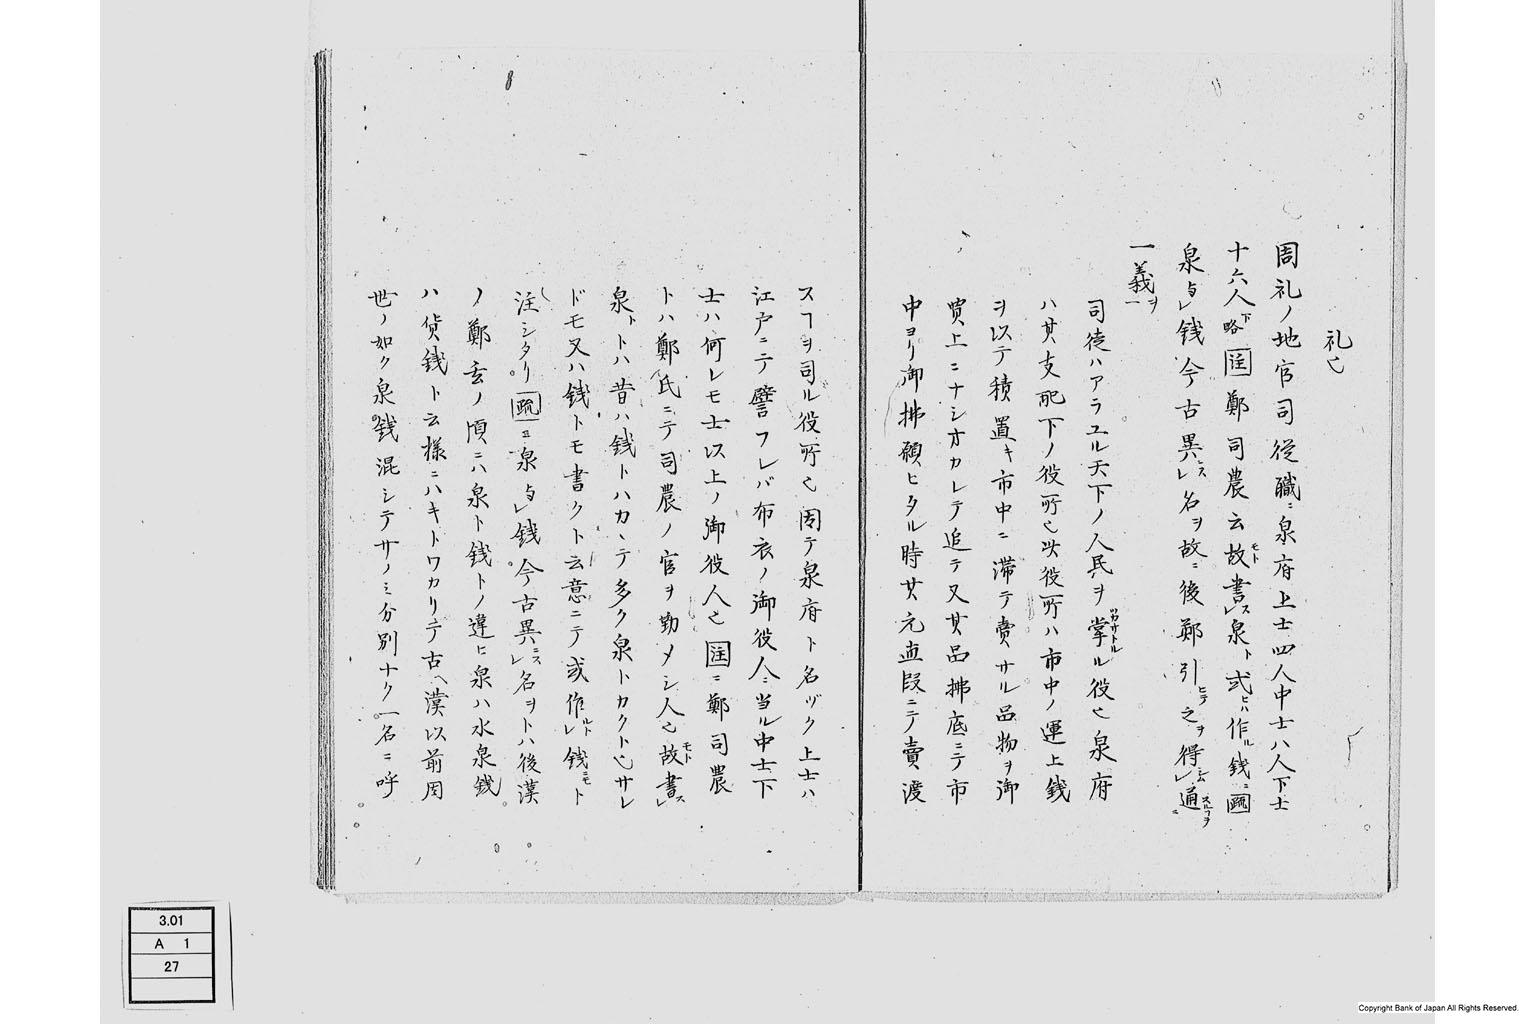 礼也
周礼ノ地官司徒職ニ泉府上士四人中士八人下士
十六人下略注鄭司農云故書モトスレ泉ト或ヒハ作ル銭ニ疏
泉与レ銭今古異ニスレ名ヲ故ニ後鄭引ヒテ之ヲ得レ通スルヿヲニ
一義ヲ一
司徒ハアラユル天下ノ人民ヲ掌ツカサトルル役也泉府
ハ其支配下ノ役所也此役所ハ市中ノ運上銭
ヲ以テ積置キ市中ニ滞テ賣サル品物ヲ御
買上ニナシオカレテ追テ又其品拂底ニテ市
中ヨリ御拂願ヒタル時其元直段ニテ賣渡
スヿヲ司ル役所也因テ泉府ト名ヅク上士ハ
江戸ニテ譬フレバ布衣ノ御役人ニ当ル中士下
士ハ何レモ士以上ノ御役人也注ニ鄭司農
トハ鄭氏ニテ司農ノ官ヲ勤メシ人也故書モトスレ
泉トトハ昔ハ銭トハカヽテ多ク泉トカクト也サレ
ドモ又ハ銭トモ書クト云意ニテ或作ルトレ銭ニモト
注シタリ疏ニ泉与レ銭今古異ニスレ名ヲトハ後漢
ノ鄭玄ノ頃ニハ泉ト銭トノ違ヒ泉ハ水泉銭
ハ貨銭ト云様ニハキトワカリテ古ヘ漢以前周
世ノ如ク泉銭混シテサノミ分別ナク一名ニ呼
3.01
A 1
27
Copyright Bank of Japan All Rights Reserved.